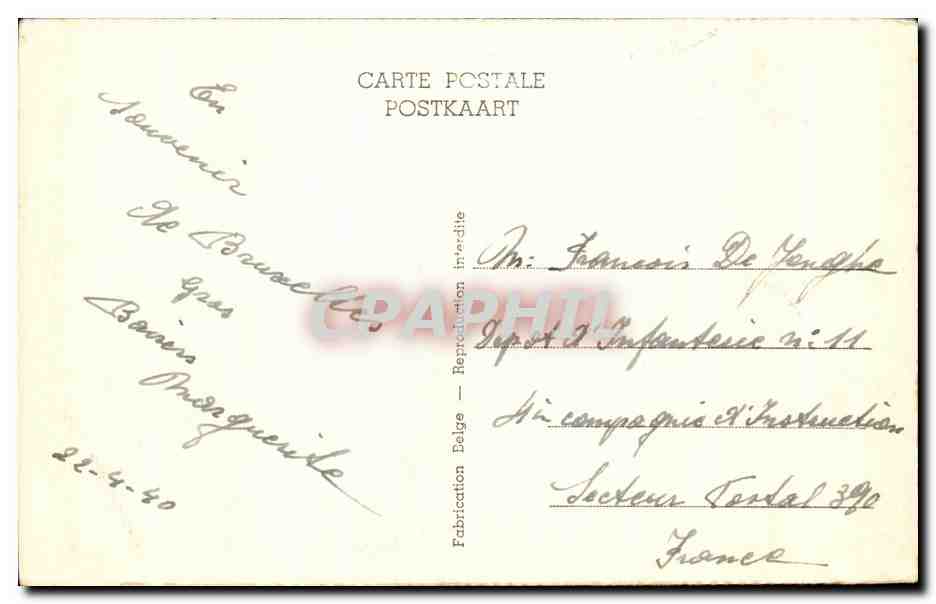 CARTE POSTALE
POSTKAART
En
souvenir
de Bruxelles
Gros
Baisers
Marguerite
22-4-40
Fabrication Belge — Reproduction interdite
CPAPHIL
M: Francois De Jonghe
Depot d'Infanterie n: 11
4ie compagnie d'Instruction
Secteur Postal 390
France